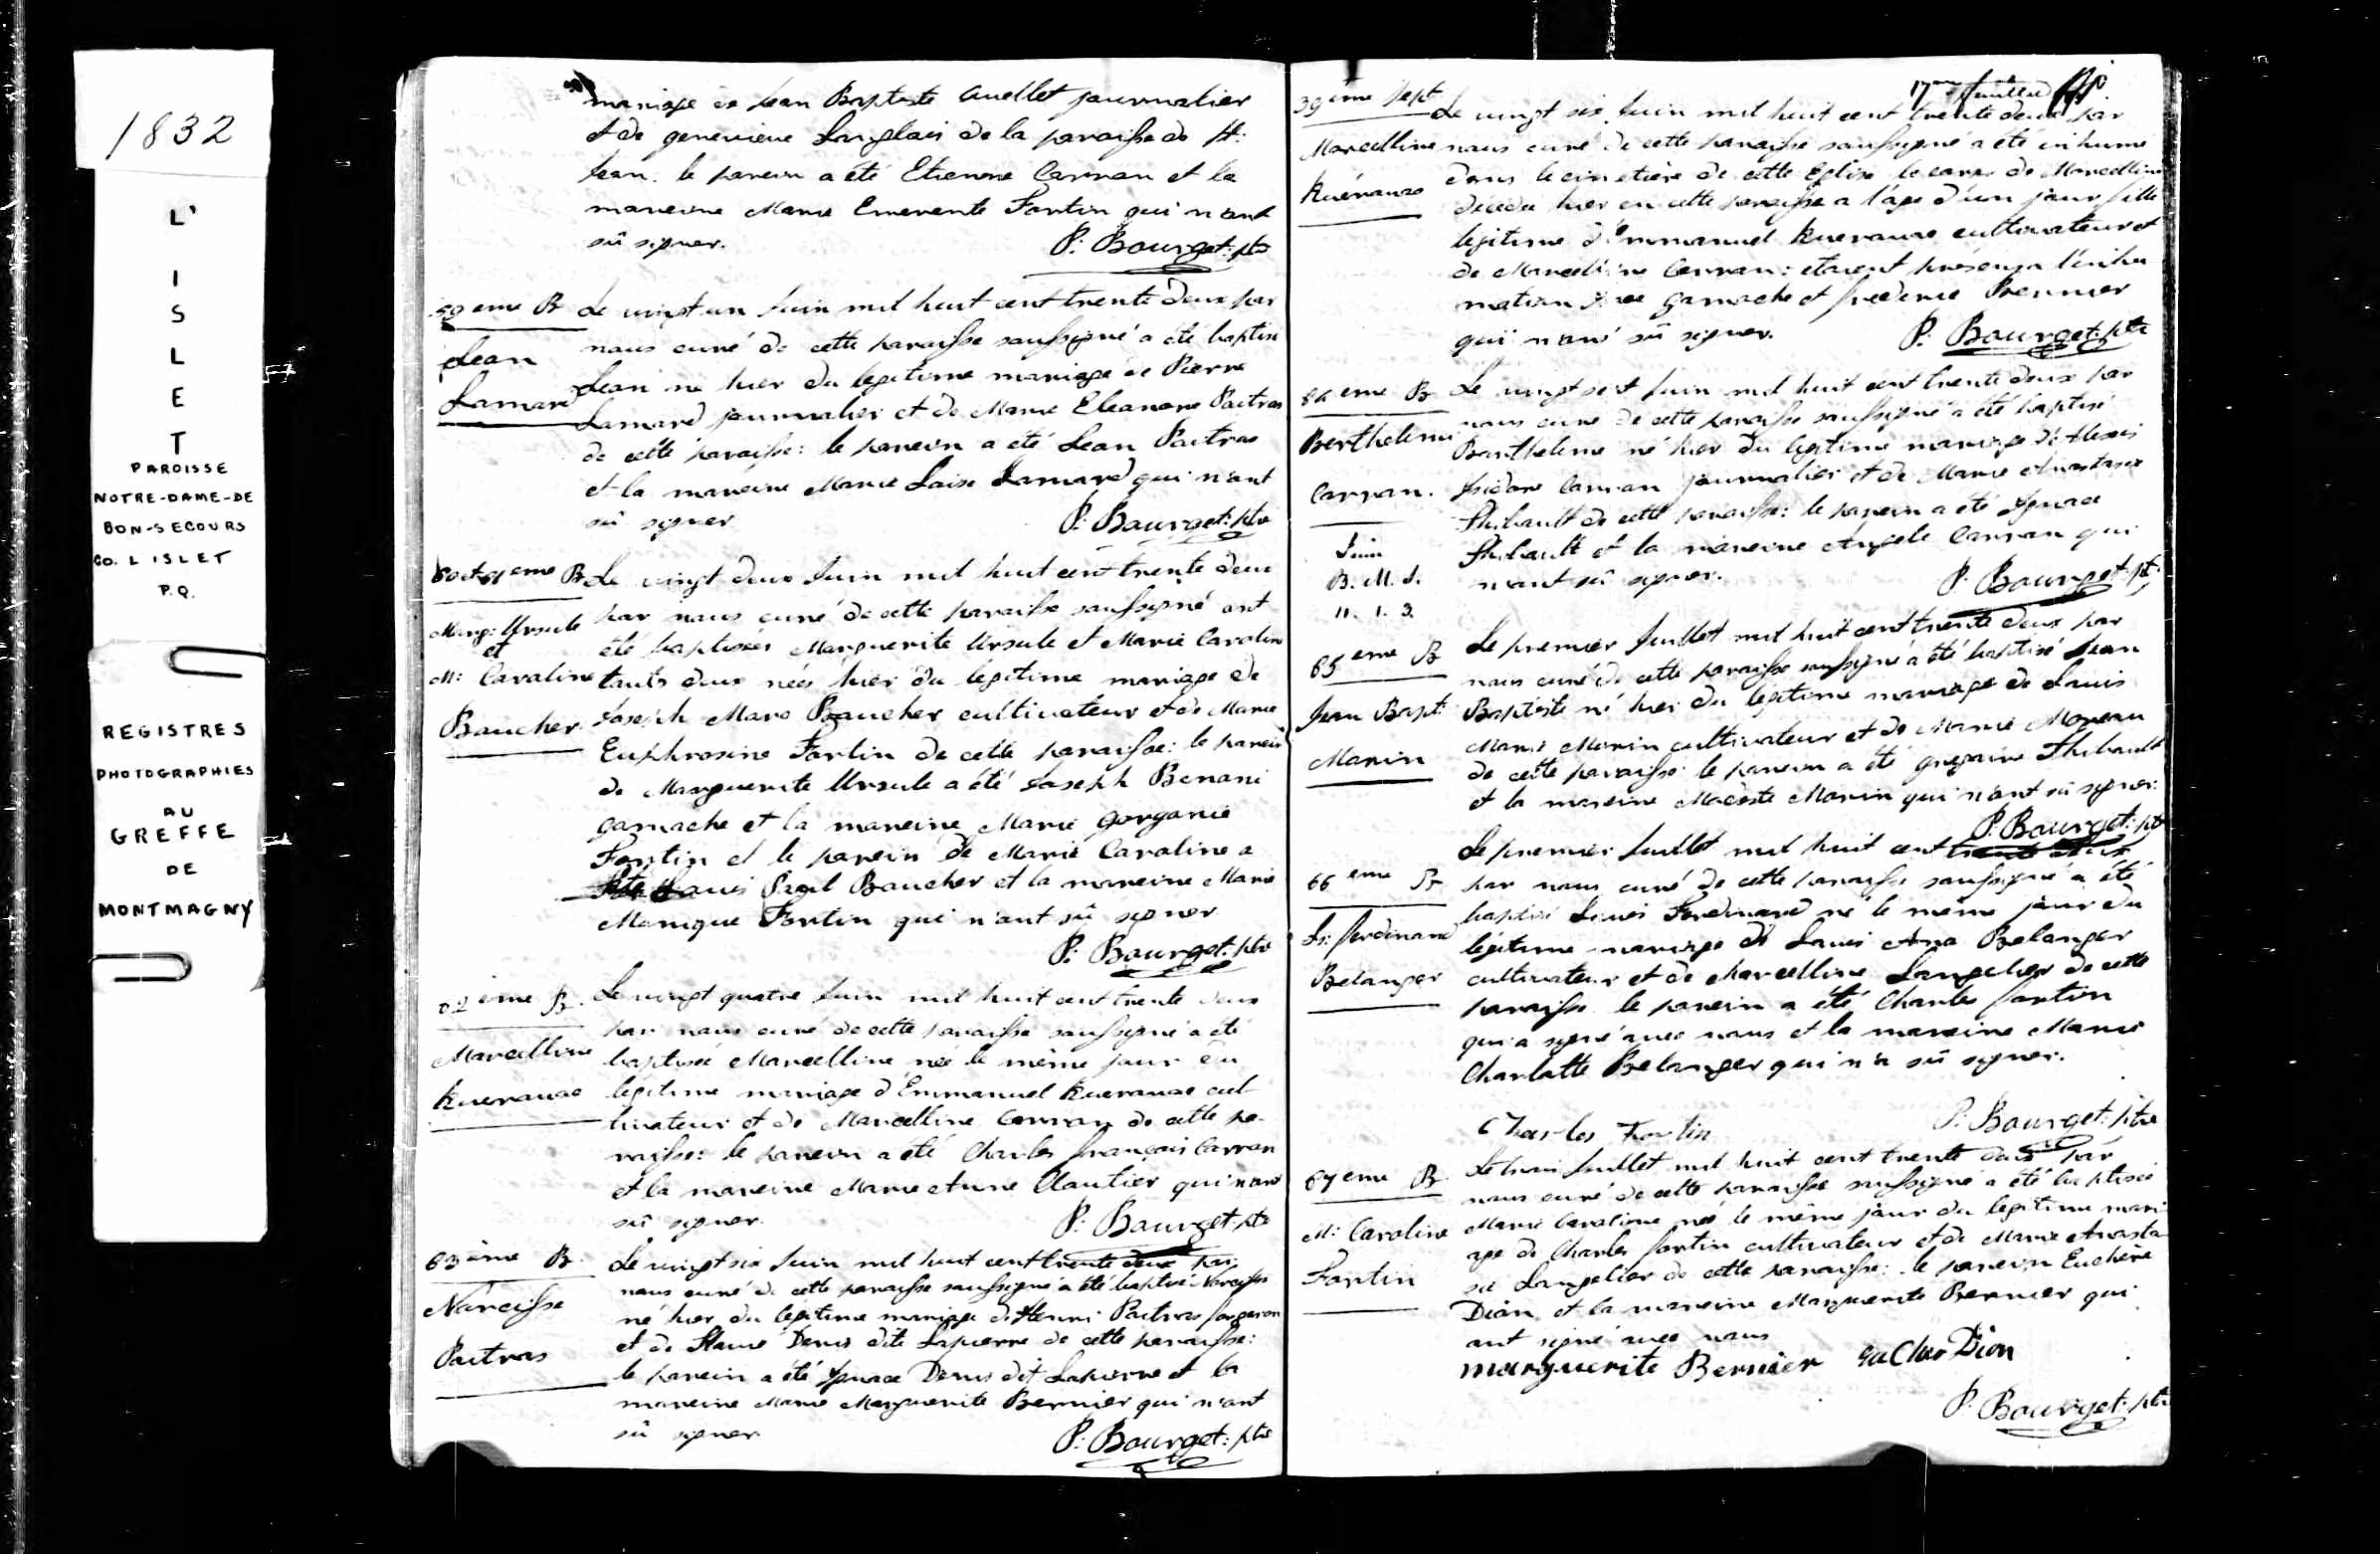 1832
L'
I
S
L
E
T
PAROISSE
NOTRE-DAME-DE
BON-SECOURS
CO. L ISLET
P.Q.
REGISTRES
PHOTOGRAPHIES
AU
GREFFE
DE
MONTMAGNY
mariage de Jean Baptiste Ouellet journalier
et de genevieve Langlais de la paroisse de St:
Jean. le parein a été Etienne Carran et la
mareine Marie Emerente Fortin qui n'ont
sû signer. P: Bourget: ptre
59 eme B
Jean
Lamard
Le vingt un Juin mil huit cent trente deux par
nous curé de cette paroisse soussigné a été baptisé
Jean né hier du legitime mariage de Pierre
Lamard journalier et de Marie Eleonore Poitras
de cette paroisse: le parein a été Jean Poitras
et la mareine Marie Loise Lamard qui n'ont
sû signer P: Bourget: ptre
60 et 61 eme B
Marg: Ursule
et
M: Caroline
Boucher
Le vingt deux Juin mil huit cent trente deux
par nous curé de cette paroisse soussigné ont
été baptisées Marguerite Ursule et Marie Caroline
toutes deux nées hier du legitime mariage de
Joseph Marc Boucher cultivateur et de Marie
Euphrosine Fortin de cette paroisse: le parein
de Marguerite Ursule a été Joseph Benoni
gamache et la mareine Marie gorgonie
Fortin et le parein de Marie Caroline a
été Louis Paul Boucher et la mareine Marie
Monique Fortin qui n'ont sû signer
P: Bourget: ptre
62 eme B.
Marcelline
Kuerouac
Le vingt quatre Juin mil huit cent trente deux
par nous curé de cette paroisse soussigné a été
baptisée Marcelline née le même jour du
legitime mariage d'Emmanuel Kuerouac cul
tivateur et de Marcelline Carran de cette pa
roisse: le parein a été Charles françois Carran
et la mareine Marie Cloutier qui n'ont
sû signer. P: Bourget: ptre
63 ème B
Narcisse
Poitras
Le vingt six Juin mil huit cent trente deux par
nous curé de cette paroisse soussigné a été baptisé Narcisse
né hier du legitime mariage d'Henri Poitras forgeron
et de Denis dite Lapierre de cette paroisse:
le parein a été Ignace Denis dit Lapierre et la
mareine Marie Marguerite Bernier qui n'ont
sû signer P: Bourget: ptre
17me feuillet
39 ème Sept
Marcelline
Kuérouac
Le vingt six Juin mil huit cent trente deux par
nous curé de cette paroisse soussigné a été inhumé
dans le cimetière de cette Eglise le corps de Marcelline
décedée hier en cette paroisse a l'age d'un jour fille
legitime d'Emmanuel Kuerouac cultivateur et
de Marcelline Carran: etoient presens a l'inhu
mation gamache et frederic Bernier
qui n'ont sû signer. P: Bourget: ptre
64 eme B
Berthelemi
Carran.
Juin
B. M. S.
11. 1. 3.
Le vingt sept Juin mil huit cent trente deux par
nous curé de cette paroisse soussigné a été baptisé
Barthelemi né hier du legitime mariage d'Alexis
Isidore Carran journalier et de Marie Anastasie
Thibault de cette paroisse: le parein a été Ignace
Thibault et la mareine Angele Carran qui
n'ont sû signer. P: Bourget: ptre
65 eme B
Jean Bapt:
Morin
Le premier Juillet mil huit cent trente deux par
nous curé de cette paroisse soussigné a été baptisé Jean
Baptiste né hier du legitime mariage de Louis
Marie Morin cultivateur et de Marie Moreau
de cette paroisse le parein a été gregoire Thibault
et la mareine Modeste Morin qui n'ont sû signer.
P: Bourget: ptre
66 eme B
Ls: ferdinand
Belanger
Le premier Juillet mil huit cent trente deux
par nous curé de cette paroisse soussigné a été
baptisé Louis Ferdinand né le même jour du
légitime mariage de Louis Belanger
cultivateur et de Marcelline Langelier de cette
paroisse le parein a été Charles fortin
qui a signé avec nous et la mareine Marie
Charlotte Belanger qui n'a sû signer.
Charles Fortin P: Bourget: ptre
67 eme B
M: Caroline
Fortin
Le trois Juillet mil huit cent trente deux par
nous curé de cette paroisse soussigné a été baptisée
Marie Caroline née le même jour du legitime mari
age de Charles fortin cultivateur et de Marie Anasta
sie Langelier de cette paroisse: le parein Euchère
Dion et la mareine Marguerite Bernier qui
ont signé avec nous
marguerite Bernier Dion
P: Bourget: ptre